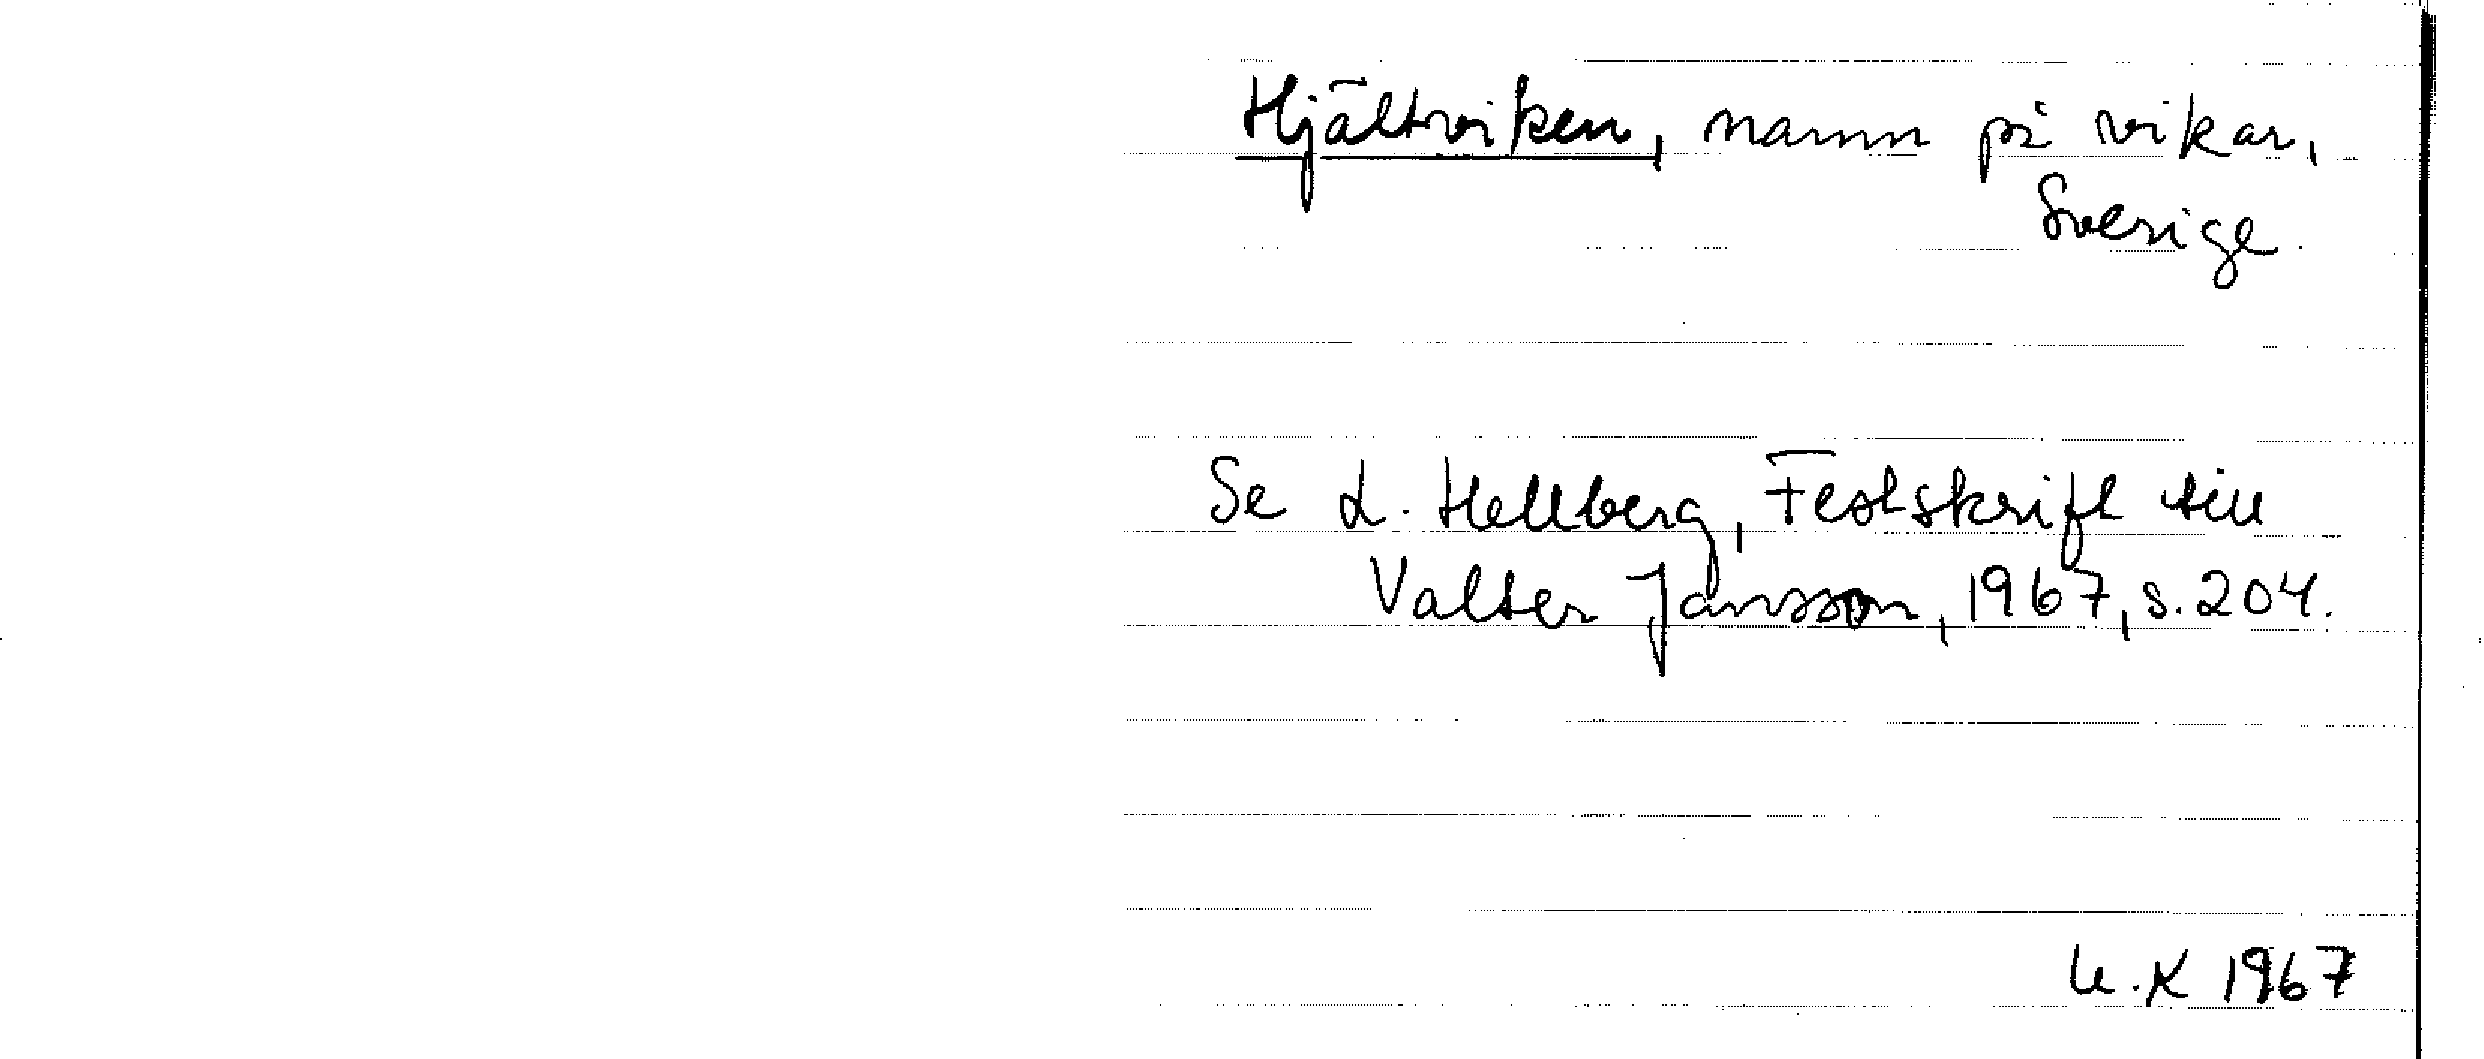 Hjältviken, namn på vikar,
Sverige.
Se L. Hellberg, Festskrift till
Valter Jansson, 1967, s. 204.
U.K 1967